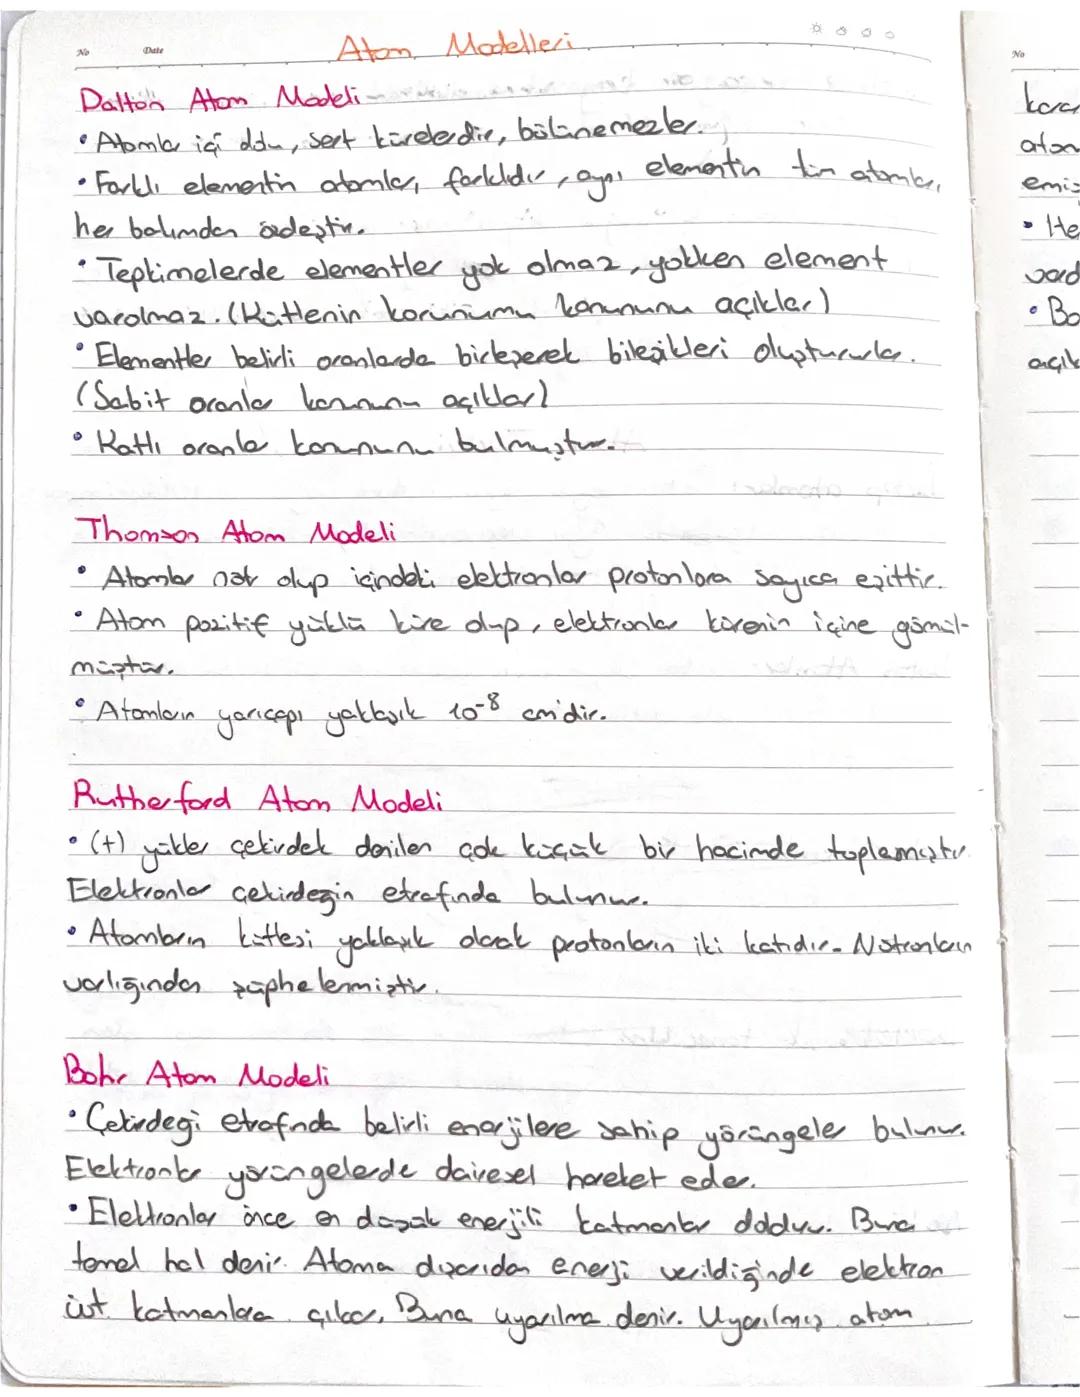 No Date Atom Modelleri
Dalton Atom Modeli
• Atomlar içi dolu, sert kürelerdir, bölünemezler.
• Farklı elementin atomları farklıdır, aynı elementin tüm atomları
her bakımdan özdeştir.
• Tepkimelerde elementler yok olmaz, yokken element
varolmaz. (Kütlenin korunumu kanununu açıklar)
• Elementler belirli oranlarda birleşerek bileşikleri oluştururlar.
(Sabit oranlar kanununu açıklar)
• Katlı oranlar kanununu bulmuştur.
Thomson Atom Modeli
• Atomlar nötr olup içindeki elektronlar protonlara sayıca eşittir.
• Atom pozitif yüklü küre olup, elektronlar kürenin içine gömül-
müştür.
• Atomların yarıçapı yaklaşık 10-8 cm'dir.
Rutherford Atom Modeli
• (+) yükler çekirdek denilen çok küçük bir hacimde toplanmıştır.
Elektronlar çekirdeğin etrafında bulunur.
• Atomların kütlesi yaklaşık olarak protonların iki katıdır. Nötronların
varlığından şüphelenmiştir.
Bohr Atom Modeli
• Çekirdeği etrafında belirli enerjilere sahip yörüngeler bulunur.
Elektronlar yörüngelerde dairesel hareket eder.
• Elektronlar önce en düşük enerjili katmanları doldurur. Buna
temel hal denir. Atoma dışarıdan enerji verildiğinde elektron
üst katmanlara çıkar. Buna uyarılma denir. Uyarılmış atom
No
• He
• Bo